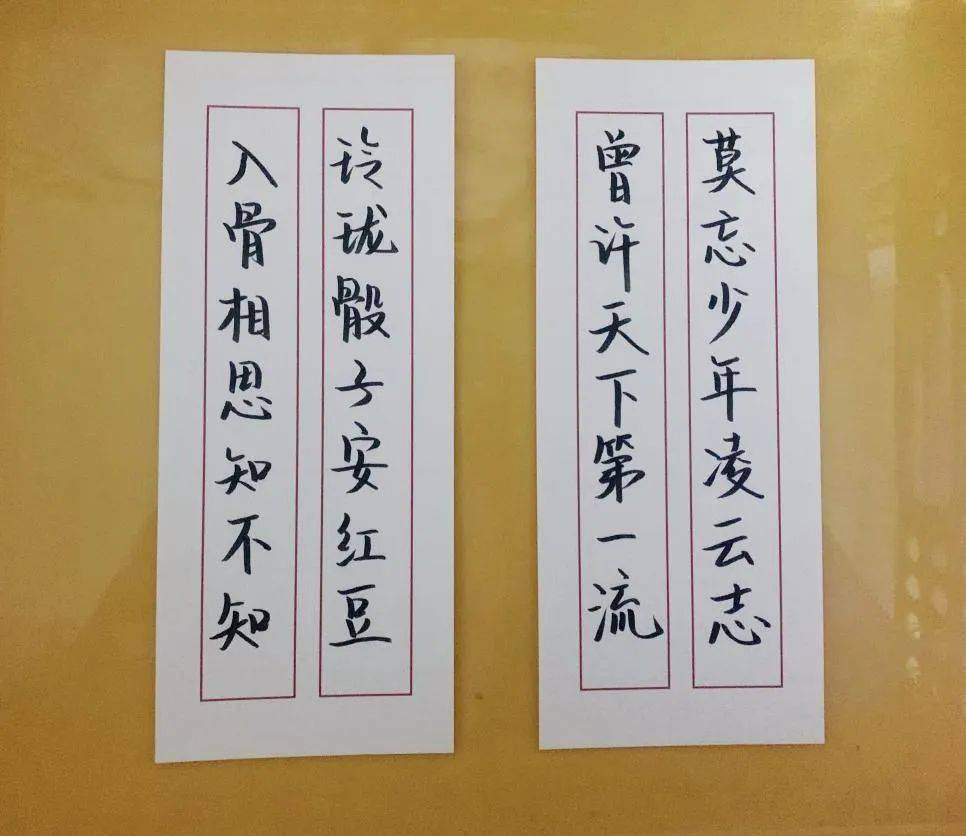 莫忘少年凌云志
曾许天下第一流
玲珑骰子安红豆
入骨相思知不知